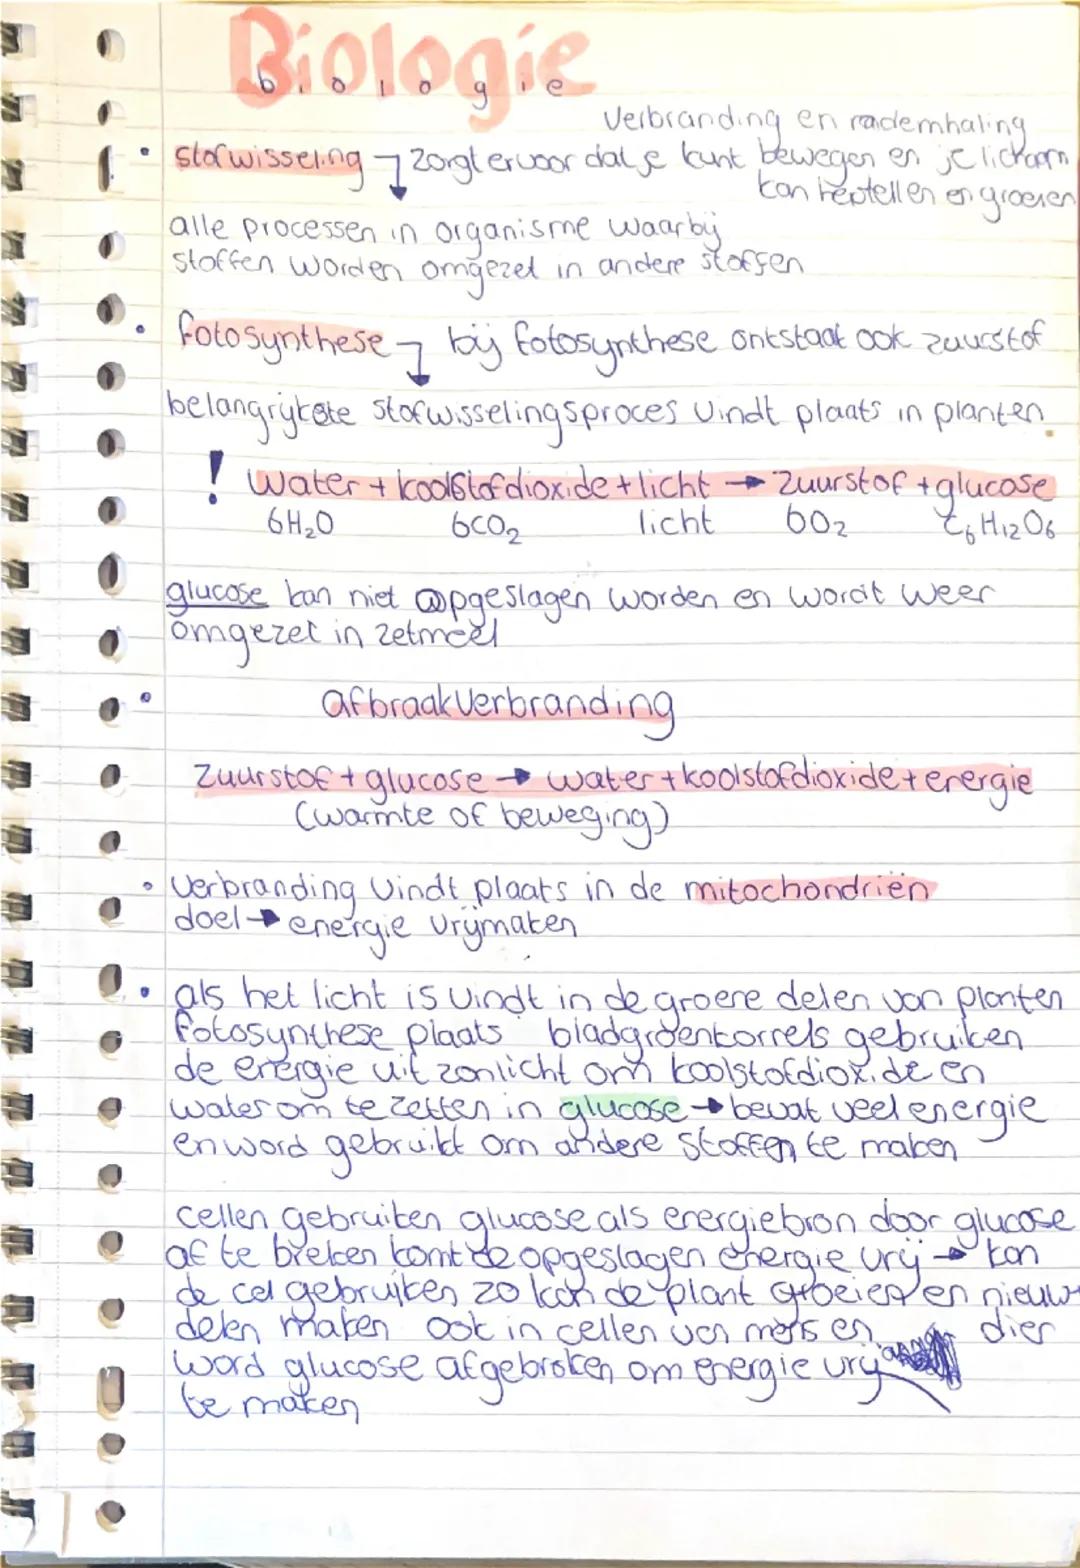 Biologie
biologie
Verbranding en rademhaling
• stofwisseling → zorgt ervoor dat je kunt bewegen en je lichaam
kan herstellen en groeien
alle processen in organisme waarbij
stoffen worden omgezet in andere stoffen
• fotosynthese → bij fotosynthese ontstaat ook zuurstof
belangrijkste stofwisselingsproces vindt plaats in planten.
! Water + koolstofdioxide + licht → zuurstof + glucose
6H₂O 6CO₂ licht 6O₂ C₆H₁₂O₆
glucose kan niet opgeslagen worden en wordt weer
omgezet in zetmeel
• afbraak verbranding
zuurstof + glucose → water + koolstofdioxide + energie
(warmte of beweging)
• Verbranding vindt plaats in de mitochondriën
doel → energie vrijmaken
• als het licht is vindt in de groene delen van planten
fotosynthese plaats bladgroenkorrels gebruiken
de energie uit zonlicht om koolstofdioxide en
water om te zetten in glucose → bevat veel energie
en word gebruikt om andere stoffen te maken
cellen gebruiken glucose als energiebron door glucose
af te breken komt de opgeslagen energie vrij → kan
de cel gebruiken zo kan de plant groeien en nieuw
delen maken ook in cellen van mens en dier
word glucose afgebroken om energie vrij
te maken